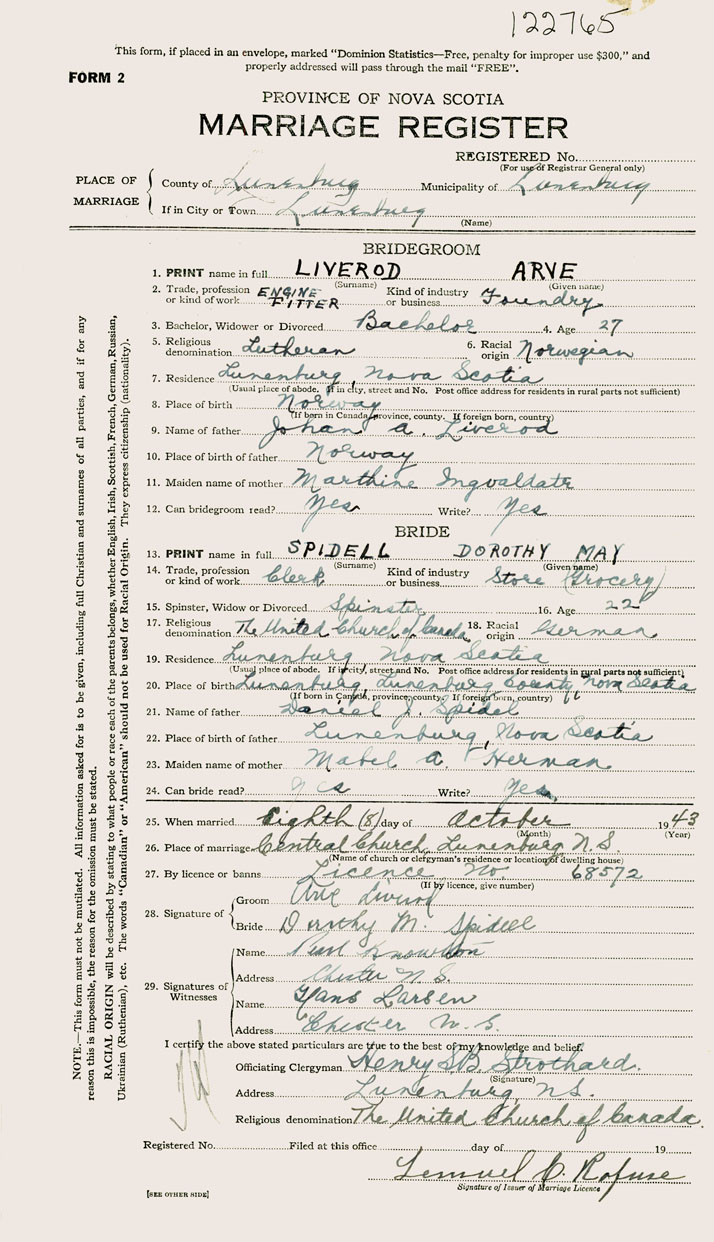 122765
This form, if placed in an envelope, marked "Dominion Statistics—Free, penalty for improper use $300," and
properly addressed will pass through the mail "FREE".
FORM 2
PROVINCE OF NOVA SCOTIA
MARRIAGE REGISTER
REGISTERED No.
(For use of Registrar General only)
PLACE OF MARRIAGE
County of Lunenburg Municipality of Lunenburg
If in City or Town Lunenburg
(Name)
BRIDEGROOM
1. PRINT name in full LIVEROD ARVE
(Surname) (Given name)
2. Trade, profession or kind of work ENGINE FITTER Kind of industry or business Foundry
3. Bachelor, Widower or Divorced Bachelor 4. Age 27
5. Religious denomination Lutheran 6. Racial origin Norwegian
7. Residence Lunenburg, Nova Scotia
(Usual place of abode. If in city, street and No. Post office address for residents in rural parts not sufficient)
8. Place of birth Norway
(If born in Canada, province, county. If foreign born, country)
9. Name of father Johan A. Liverod
10. Place of birth of father Norway
11. Maiden name of mother Marthine Ingvaldate
12. Can bridegroom read? Yes Write? Yes
BRIDE
13. PRINT name in full SPIDELL DOROTHY MAY
(Surname) (Given name)
14. Trade, profession or kind of work Clerk Kind of industry or business Store (Grocery)
15. Spinster, Widow or Divorced Spinster 16. Age 22
17. Religious denomination The United Church of Canada 18. Racial origin German
19. Residence Lunenburg Nova Scotia
(Usual place of abode. If in city, street and No. Post office address for residents in rural parts not sufficient)
20. Place of birth Lunenburg, Lunenburg County, Nova Scotia
(If born in Canada, province, county. If foreign born, country)
21. Name of father Daniel J. Spidel
22. Place of birth of father Lunenburg, Nova Scotia
23. Maiden name of mother Mabel A. Herman
24. Can bride read? Yes Write? Yes
25. When married Eighth (8) day of October 1943
(Month) (Year)
26. Place of marriage Central Church, Lunenburg N.S.
(Name of church or clergyman's residence or location of dwelling house)
27. By licence or banns Licence No 68572
(If by licence, give number)
28. Signature of
Groom Arve Liverod
Bride Dorothy M. Spidell
29. Signatures of Witnesses
Name Pearl Knowlton
Address Chester N.S.
Name Hans Larsen
Address Chester N.S.
I certify the above stated particulars are true to the best of my knowledge and belief.
Officiating Clergyman Henry S.B. Strothard.
(Signature)
Address Lunenburg, N.S.
Religious denomination The United Church of Canada.
Registered No. Filed at this office day of 19
Lemuel C. Rofuse
Signature of Issuer of Marriage Licence
[SEE OTHER SIDE]
NOTE.—This form must not be mutilated. All information asked for is to be given, including full Christian and surnames of all parties, and if for any
reason this is impossible, the reason for the omission must be stated.
RACIAL ORIGIN will be described by stating to what people or race each of the parents belongs, whether English, Irish, Scottish, French, German, Russian,
Ukrainian (Ruthenian), etc. The words "Canadian" or "American" should not be used for Racial Origin. They express citizenship (nationality).